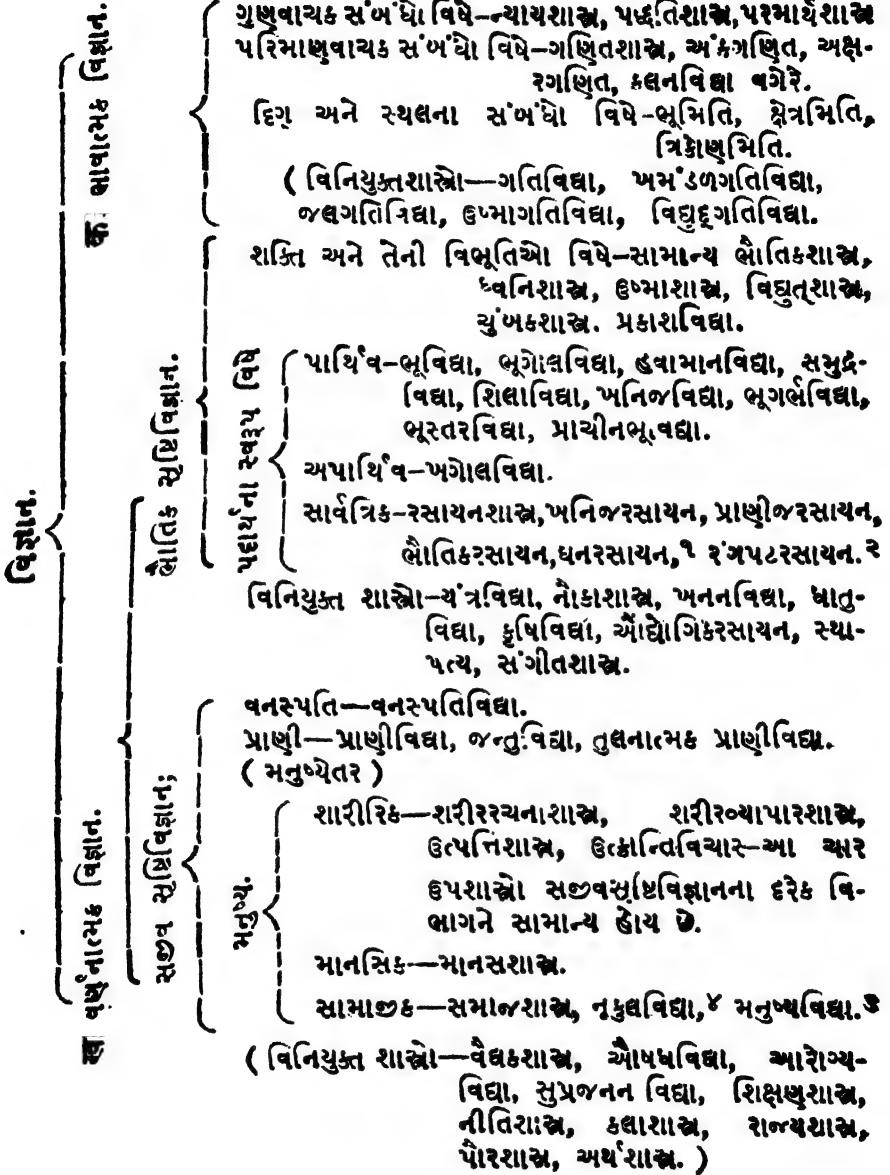 વિજ્ઞાન.
क ભાવાત્મક વિજ્ઞાન.
ગુણવાચક સંબંધો વિષે–ન્યાયશાસ્ત્ર, પદ્ધતિશાસ્ત્ર, પરમાર્થશાસ્ત્ર
પરિમાણવાચક સંબંધો વિષે–ગણિતશાસ્ત્ર, અંકગણિત, અક્ષ-
રગણિત, કલનવિદ્યા વગેરે.
દિગ્ અને સ્થલના સંબંધો વિષે–ભૂમિતિ, ક્ષેત્રમિતિ,
ત્રિકોણમિતિ.
( વિનિયુક્તશાસ્ત્રો—ગતિવિદ્યા, ખમંડળગતિવિદ્યા,
જલગતિવિદ્યા, ઉષ્માગતિવિદ્યા, વિદ્યુદ્ગતિવિદ્યા.
ख વર્ણનાત્મક વિજ્ઞાન.
ભૌતિક સૃષ્ટિવિજ્ઞાન.
શક્તિ અને તેની વિભૂતિઓ વિષે–સામાન્ય ભૌતિકશાસ્ત્ર,
ધ્વનિશાસ્ત્ર, ઉષ્માશાસ્ત્ર, વિદ્યુત્શાસ્ત્ર,
ચુંબકશાસ્ત્ર. પ્રકાશવિદ્યા.
પદાર્થના સ્વરૂપ વિષે
પાર્થિવ–ભૂવિદ્યા, ભૂગોલવિદ્યા, હવામાનવિદ્યા, સમુદ્ર-
વિદ્યા, શિલાવિદ્યા, ખનિજવિદ્યા, ભૂગર્ભવિદ્યા,
ભૂસ્તરવિદ્યા, પ્રાચીનભૂવિદ્યા.
અપાર્થિવ–ખગોલવિદ્યા.
સાર્વત્રિક–રસાયનશાસ્ત્ર, ખનિજરસાયન, પ્રાણીજરસાયન,
ભૌતિકરસાયન, ઘનરસાયન,૧ રંગપટરસાયન.૨
વિનિયુક્ત શાસ્ત્રો–યંત્રવિદ્યા, નૌકાશાસ્ત્ર, ખનનવિદ્યા, ધાતુ-
વિદ્યા, કૃષિવિદ્યા, ઔદ્યોગિકરસાયન, સ્થા-
પત્ય, સંગીતશાસ્ત્ર.
સજીવ સૃષ્ટિવિજ્ઞાન;
વનસ્પતિ—વનસ્પતિવિદ્યા.
પ્રાણી—પ્રાણીવિદ્યા, જન્તુવિદ્યા, તુલનાત્મક પ્રાણીવિદ્યા.
( મનુષ્યેતર )
મનુષ્ય.
શારીરિક—શરીરરચનાશાસ્ત્ર, શરીરવ્યાપારશાસ્ત્ર,
ઉત્પત્તિશાસ્ત્ર, ઉત્ક્રાન્તિવિચાર–આ ચાર
ઉપશાસ્ત્રો સજીવસૃષ્ટિવિજ્ઞાનના દરેક વિ-
ભાગને સામાન્ય હોય છે.
માનસિક—માનસશાસ્ત્ર.
સામાજીક—સમાજશાસ્ત્ર, નૃકુલવિદ્યા,૪ મનુષ્યવિદ્યા.૩
( વિનિયુક્ત શાસ્ત્રો—વૈદ્યકશાસ્ત્ર, ઔષધવિદ્યા, આરોગ્ય-
વિદ્યા, સુપ્રજનન વિદ્યા, શિક્ષણશાસ્ત્ર,
નીતિશાસ્ત્ર, કલાશાસ્ત્ર, રાજ્યશાસ્ત્ર,
પૌરશાસ્ત્ર, અર્થશાસ્ત્ર. )